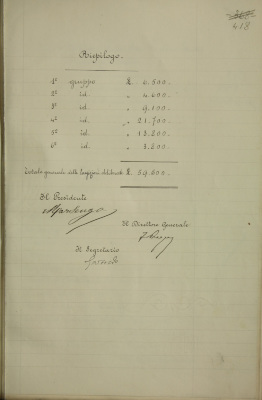 418
Riepilogo.
1° gruppo £ 6.500.-
2° id. " 4.600.-
3° id. " 9.100.-
4° id. " 21.700.-
5° id. " 13.200.-
6° id. " 3.500.-
Totale generale £ 59.600.-
Il Presidente
Il Direttore Generale
Il Segretario